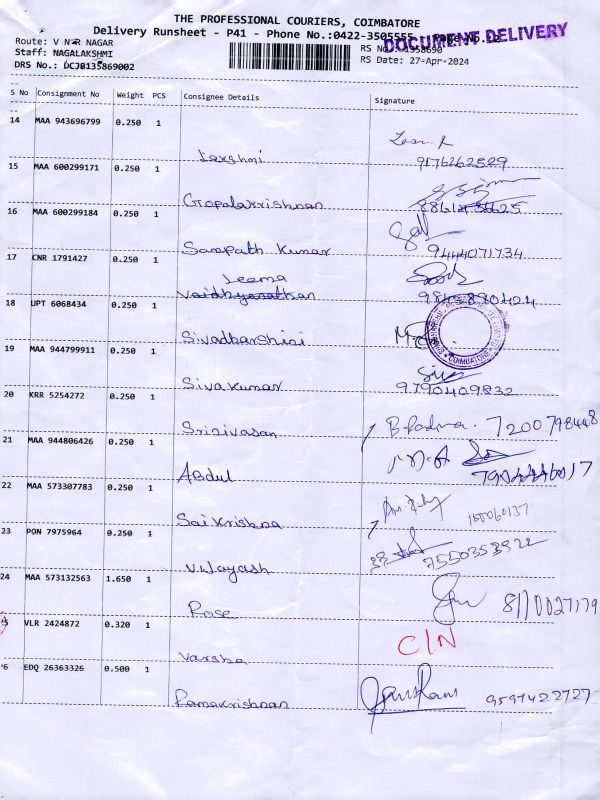 THE PROFESSIONAL COURIERS, COIMBATORE
Delivery Runsheet - P41 - Phone No.:0422-3505555 Page No.
DOCUMENT DELIVERY
Route: V N R NAGAR
RS No.: 1358690
Staff: NAGALAKSHMI
DRS No.: DCJ0135869002
RS Date: 27-Apr-2024
S No Consignment No Weight PCS Consignee Details Signature
14 MAA 943696799 0.250 1
Lakshmi 9176262509
15 MAA 600299171 0.250 1
Gopalakrishnan
16 MAA 600299184 0.250 1
Sampath Kumar 9444071734
17 CNR 1791427 0.250 1
Leema
Vaidhyanathan
18 UPT 6068434 0.250 1
Sivadharshini
COIMBATORE
19 MAA 944799911 0.250 1
Sivakumar 9790409832
20 KRR 5254272 0.250 1
Srinivasan B. Padma. 7200798448
21 MAA 944806426 0.250 1
Abdul
22 MAA 573307783 0.250 1
Sai Krishna
23 PON 7975964 0.250 1
V. Wayash 7550353922
24 MAA 573132563 1.650 1
Rose 8110027179
25 VLR 2424872 0.320 1
Varsha C/N
26 EDQ 26363326 0.500 1
Ramakrishnan 9597422727